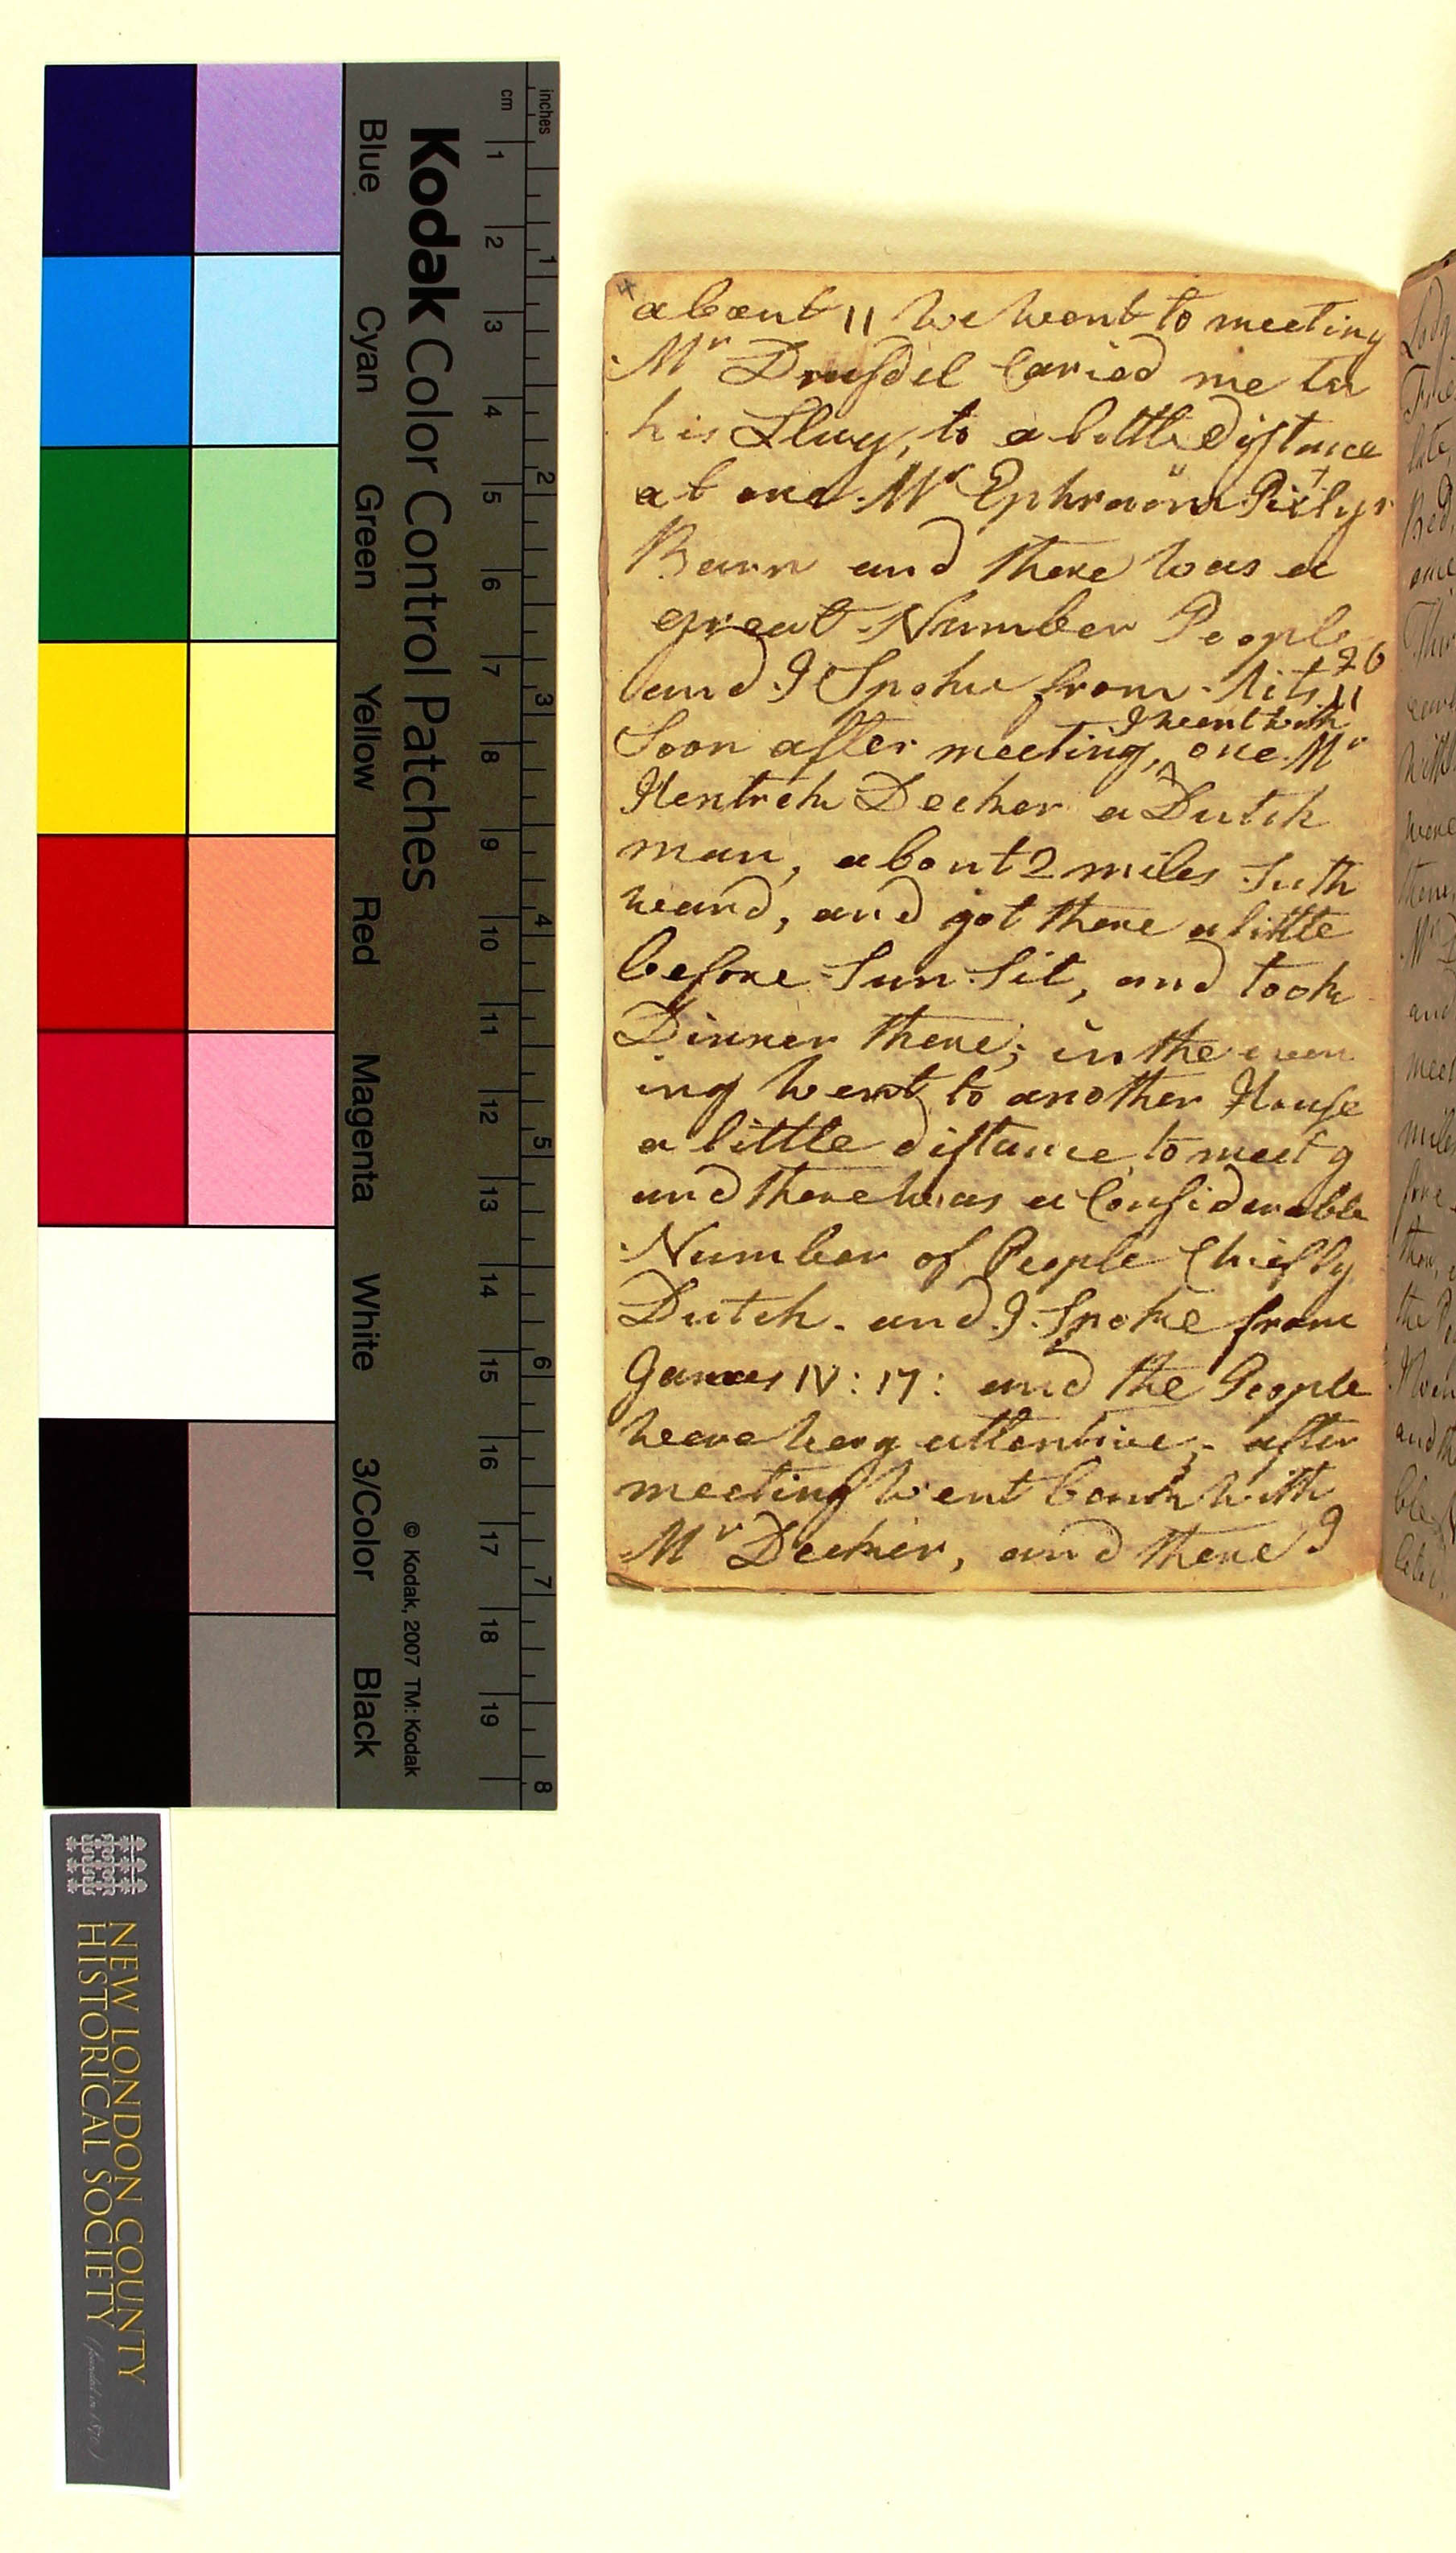 Kodak Color Control Patches
Blue Cyan Green Yellow Red Magenta White 3/Color Black
© Kodak, 2007 TM: Kodak
cm 1 2 3 4 5 6 7 8 9 10 11 12 13 14 15 16 17 18 19
inches 1 2 3 4 5 6 7 8
NEW LONDON COUNTY
HISTORICAL SOCIETY (founded in 1870)
4
about 11 we went to meeting
Mr Caried me in
his Slay, to a little Distance
at one Mr Ephraim Pixlys
Barn and there was a
great Number People
and I Spoke from Acts 26
11
I went with
Soon after meeting, ^ one Mr
Decker a Dutch
man, about 2 miles Suth
ward, and got there a little
before Sun Sit, and took
Dinner there; in the even
ing went to another House
a little distance to meet g
and there was a Considerable
Number of People Chiefly
Dutch. and I Spoke from
James IV: 17: and the People
were very attentive; after
meeting went back with
Mr Decker, and there I